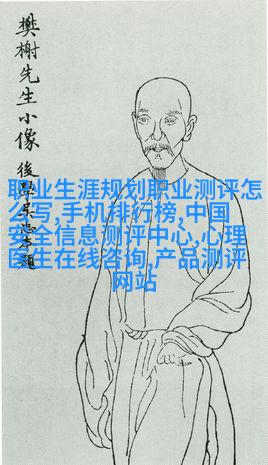 樊榭先生小像
後學
职业生涯规划职业测评怎
么写,手机排行榜,中国
安全信息测评中心,心理
医生在线咨询,产品测评
网站